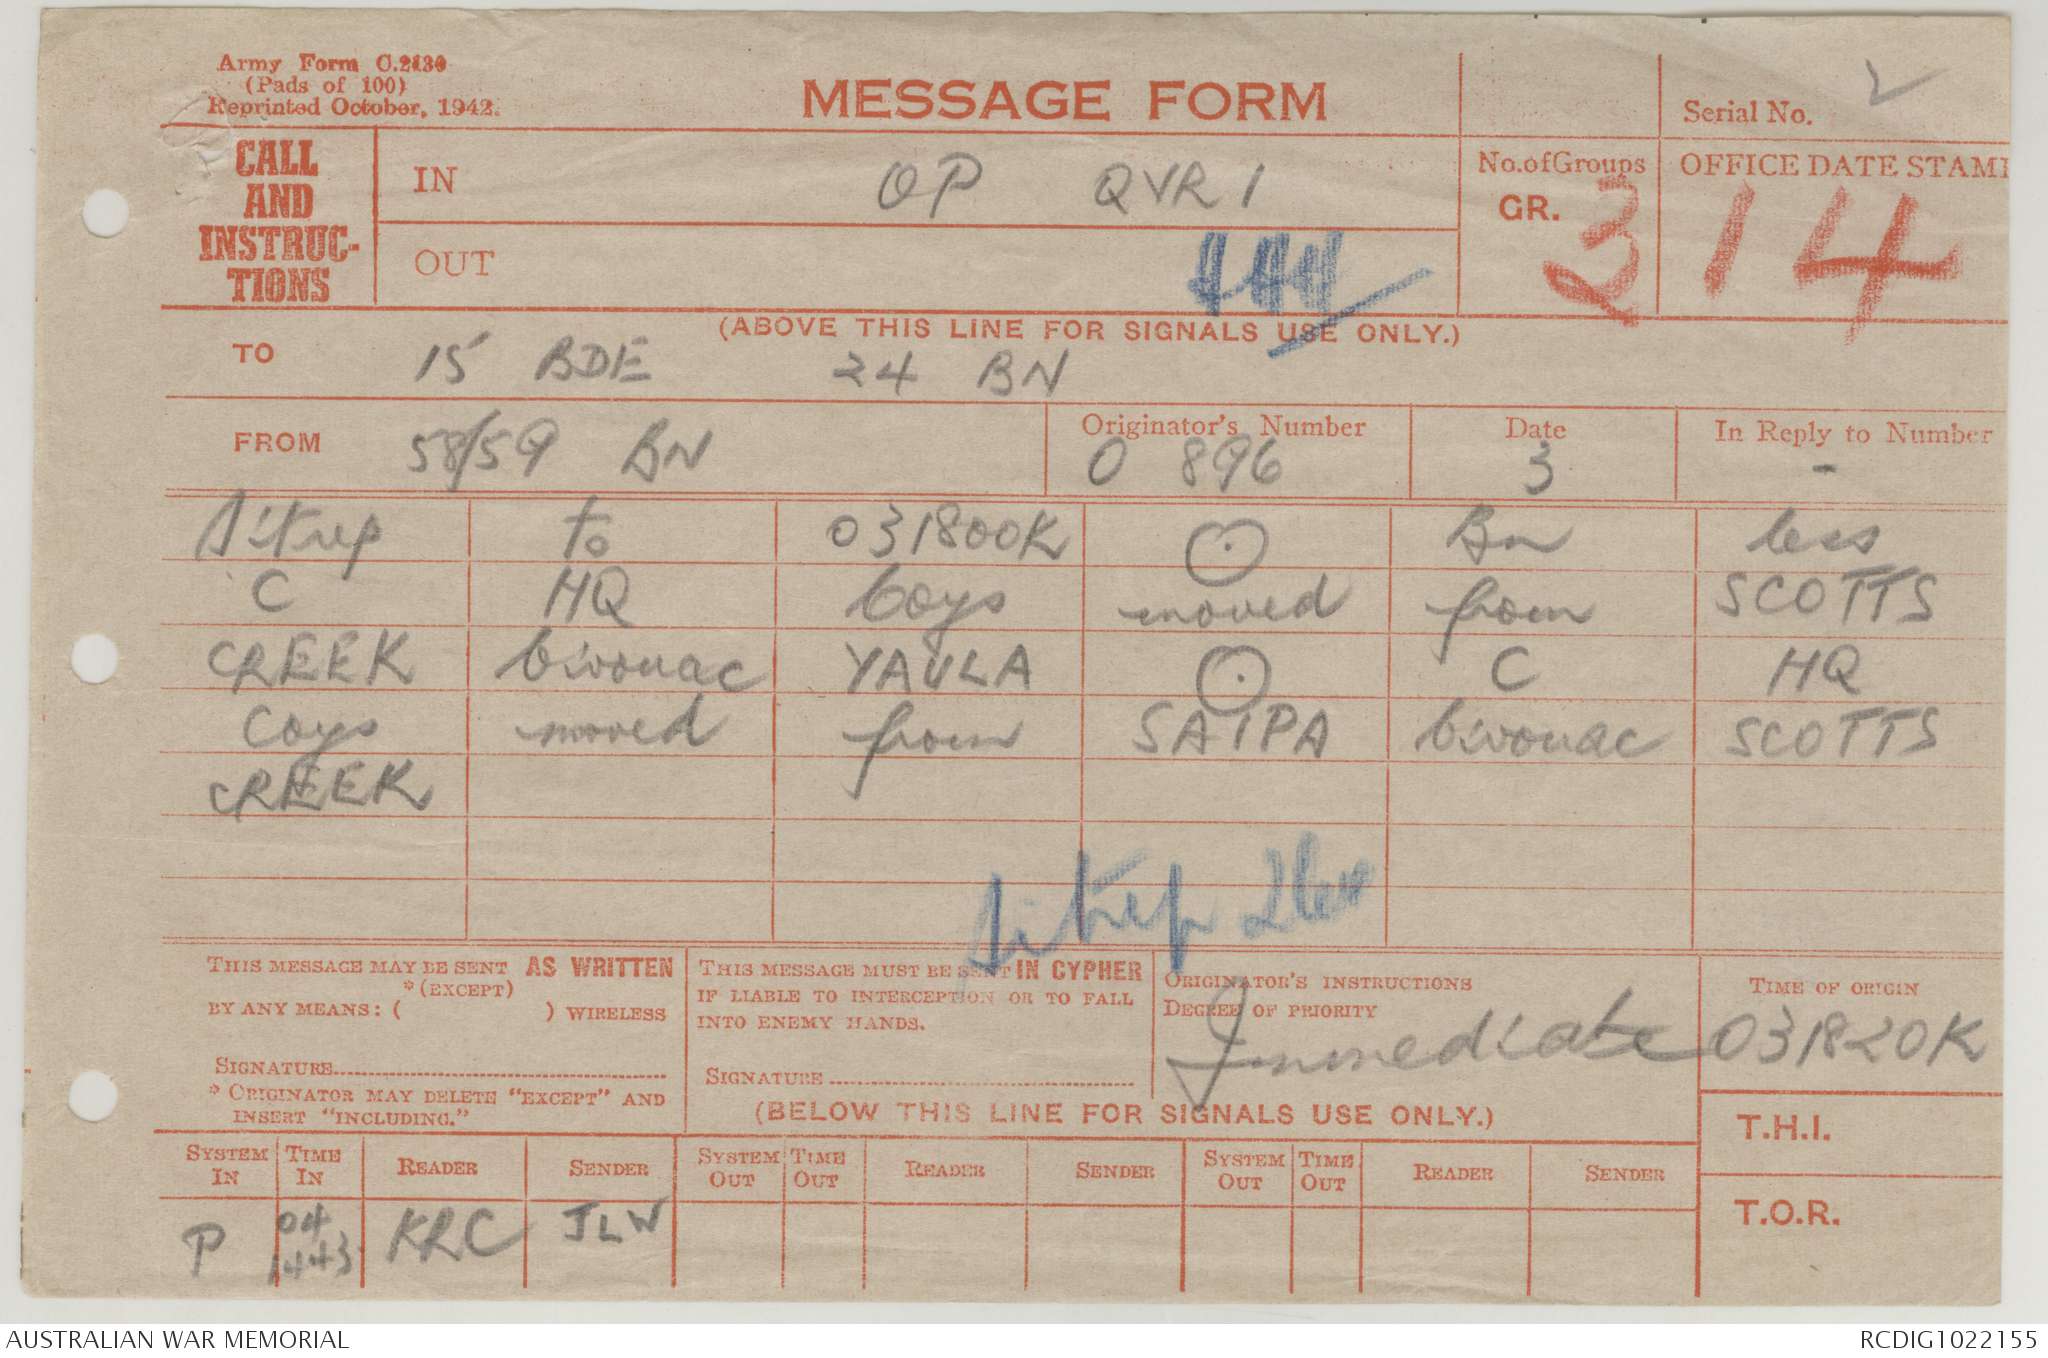 Army Form C.2130
(Pads of 100)
Reprinted October, 1942.
MESSAGE FORM
Serial No.
CALL AND INSTRUC-TIONS
IN OP QVR 1
OUT
No. of Groups
GR. 3
OFFICE DATE STAMP
14
(ABOVE THIS LINE FOR SIGNALS USE ONLY.)
TO 15 BDE 24 BN
FROM 58/59 BN
Originator's Number
0 896
Date
3
In Reply to Number
-
Sitrep to 031800K ⊙ Bn less
C HQ Coys moved from SCOTTS
CREEK bivouac YAULA ⊙ C HQ
Coys moved from SAIPA bivouac SCOTTS
CREEK
Sitrep
THIS MESSAGE MAY BE SENT AS WRITTEN
*(EXCEPT)
BY ANY MEANS: ( ) WIRELESS
SIGNATURE
* ORIGINATOR MAY DELETE "EXCEPT" AND
INSERT "INCLUDING."
THIS MESSAGE MUST BE SENT IN CYPHER
IF LIABLE TO INTERCEPTION OR TO FALL
INTO ENEMY HANDS.
SIGNATURE
ORIGINATOR'S INSTRUCTIONS
DEGREE OF PRIORITY
Immediate
TIME OF ORIGIN
031820K
(BELOW THIS LINE FOR SIGNALS USE ONLY.)
T.H.I.
T.O.R.
SYSTEM IN TIME IN READER SENDER SYSTEM OUT TIME OUT READER SENDER SYSTEM OUT TIME OUT READER SENDER
P 04 1443 KRC JLW
AUSTRALIAN WAR MEMORIAL RCDIG1022155